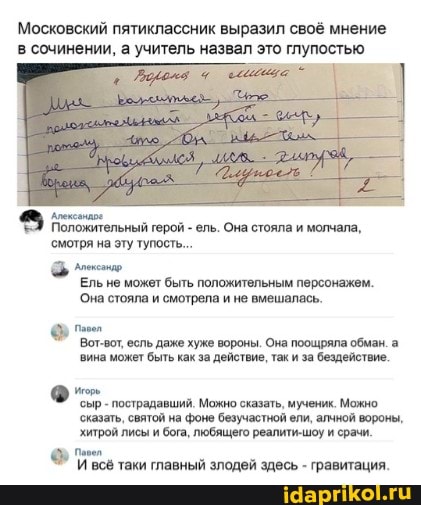 Московский пятиклассник выразил своё мнение
в сочинении, а учитель назвал это глупостью
" Ворона и лисица "
Мне кажиться, что
положительный герой - сыр,
потому что он ни чем
не провинился, лиса - хитрая,
ворона глупая Глупость 2
Александра
Положительный герой - ель. Она стояла и молчала,
смотря на эту тупость...
Александр
Ель не может быть положительным персонажем.
Она стояла и смотрела и не вмешалась.
Павел
Вот-вот, есль даже хуже вороны. Она поощряла обман. а
вина может быть как за действие, так и за бездействие.
Игорь
сыр - пострадавший. Можно сказать, мученик. Можно
сказать, святой на фоне безучастной ели, алчной вороны,
хитрой лисы и бога, любящего реалити-шоу и срачи.
Павел
И всё таки главный злодей здесь - гравитация.
idaprikol.ru